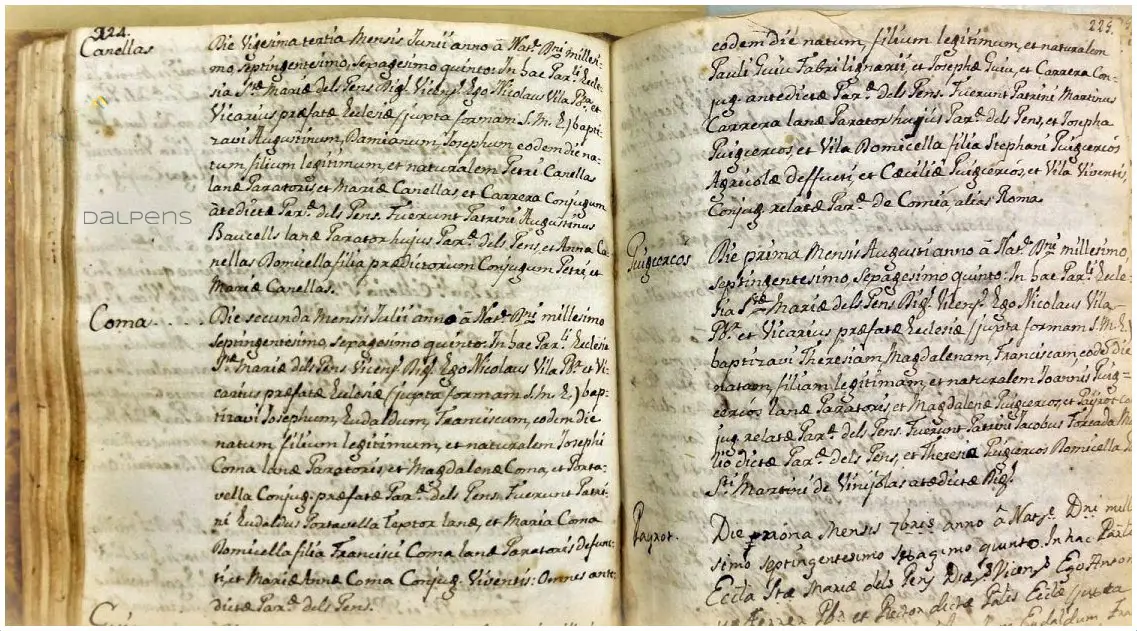 224.
Canellas
Die Vigesima tertia Mensis Junii anno â Nat.e Dni millesi-
mo, septingentesimo, sexagesimo quinto: In hac Par.li Eccle-
sia S.tæ Mariæ dels Pens Bisb. Vicens.s Ego Nicolaus Vila Pbr. et
Vicarius præfatæ Ecclesiæ (juxta formam S. M. E.) bapti-
zavi Augustinum, Damianum, Josephum eodem die na-
tum, filium legitimum, et naturalem Petri Canellas
lanæ Paratoris, et Mariæ Canellas et Carrera Conjugum
atedictæ Par.æ dels Pens. Fuerunt Patrini Augustinus
Baucells lanæ Parator hujus Par.æ dels Pens, et Anna Ca-
nellas Domicella filia prædictorum Conjugum Petri, et
Mariæ Canellas.
DALPENS
Coma
Die secunda Mensis Julii anno â Nat.e Dni millesimo
septingentesimo, sexagesimo quinto: In hac Par.li Ecclesia
S.tæ Mariæ dels Pens Vicens.s Bisb. Ego Nicolaus Vila Pbr. et Vi-
carius præfatæ Ecclesiæ (juxta formam S. M. E.) bap-
tizavi Josephum, Eudaldum, Franciscum, eodem die
natum, filium legitimum, et naturalem Josephi
Coma lanæ Paratoris, et Magdalenæ Coma, et Porta-
vella Conjug. præfatæ Par.æ dels Pens. Fuerunt Patri-
ni Eudaldus Portavella Textor lanæ, et Maria Coma
Domicella filia Francisci Coma lanæ Paratoris defunc-
ti, et Mariæ Annæ Coma Conjug. Viventis: Omnes ante-
dictæ Par.æ dels Pens.
225.
eodem die natum, filium legitimum, et naturalem
Pauli Guiu Fabri lignarii, et Josephæ Guiu, et Carrera Con-
jug. antedictæ Par.æ dels Pens. Fuerunt Patrini Martinus
Carrera lanæ Parator hujus Par.æ dels Pens, et Josepha
Puigcercos, et Vila Domicella filia Stephani Puigcercos
Agricolæ deffucti, et Cæciliæ Puigcercos, et Vila Viventis,
Conjug. relatæ Par.æ de Comia, alias Roma.
Puigcercos
Die prima Mensis Augusti anno â Nat.e Dni millesimo,
septingentesimo, sexagesimo quinto: In hac Par.li Eccle-
sia S.tæ Mariæ dels Pens Bisb. Vicens.s Ego Nicolaus Vila
Pbr. et Vicarius præfatæ Ecclesiæ (juxta formam S. M. E.)
baptizavi Theresiam, Magdalenam, Franciscam, eodem die
natam, filiam legitimam, et naturalem Joannis Puig-
cercos lanæ Paratoris, et Magdalenæ Puigcercos, et Payrot Con-
jug. relatæ Par.æ dels Pens. Fuerunt Patrini Jacobus Forcada
dictæ Par.æ dels Pens, et Theresia Puigcercos Domicella
S.ti Martini de Vinyolas atedictæ Bisb.
Payrot.
Die prima Mensis 7bris anno â Nat.e Dni mille
simo septingentesimo sexagimo quinto. In hac Par.li
Eccl.a S.tæ Mariæ dels Pens Vicens.s Ego Anton
Pbr. et Rector dictæ Par.lis Eccl.æ juxta
Eudaldum